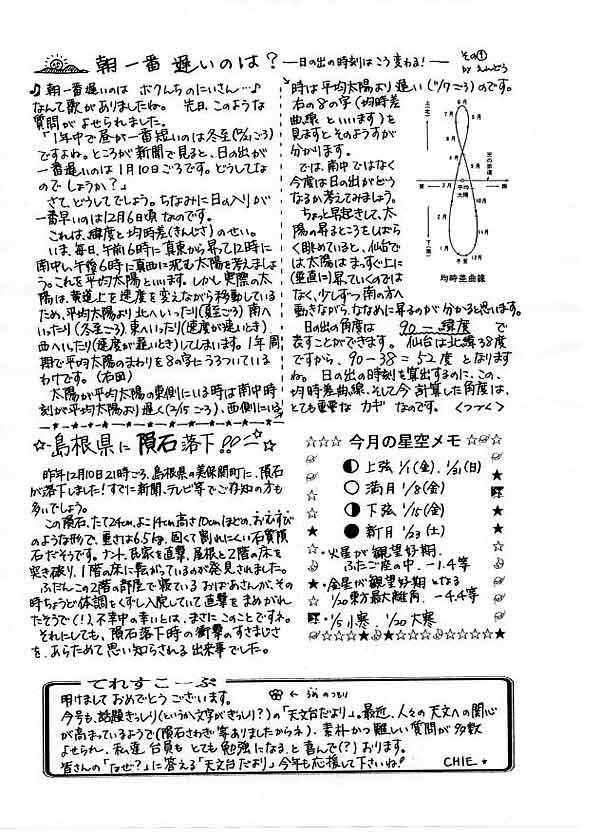 朝一番遅いのは？ —日の出の時刻はこう変わる！— その①
by えんどう
♪朝一番遅いのは ボクんちのにいさん…♪
なんて歌がありましたね。 先日、このような
質問がよせられました。
「1年中で昼が一番短いのは冬至(12/22ごろ)
ですよね。ところが新聞で見ると、日の出が
一番遅いのは1月10日ごろです。どうしてな
のでしょうか？」
さて、どうしてでしょう。ちなみに日の入りが
一番早いのは12月6日頃なのです。
これは、緯度と均時差(きんじさ)のせい。
いま、毎日、午前6時に真東から昇って12時に
南中し、午後6時に真西に沈む太陽を考えましょ
う。これを平均太陽といいます。しかし実際の太
陽は、黄道上を速度を変えながら移動している
ため、平均太陽より北へいったり(夏至ごろ)南へ
いったり(冬至ごろ)東へいったり(速度が速いとき)、
西へいったり(速度が遅いとき)してしまいます。1年周
期で平均太陽のまわりを8の字にうろついている
わけです。(右図)
太陽が平均太陽の東側にいる時は南中時
刻が平均太陽より遅く(2/15ごろ)、西側にいる
時は平均太陽より速い(11/7ごろ)のです。
右の8の字(均時差
曲線といいます)を
見ますとそのようすが
分かります。
では、南中ではなく
今度は日の出がどう
なるか考えてみましょう。
ちょっと早起きして、太
陽の昇るところをしばら
く眺めていると、仙台で
は太陽はまっすぐ上に
(垂直に)昇っていくのでは
なく、少しずつ南の方へ
動きながら、ななめに昇るのが分かると思います。
日の出の角度は 90−緯度 で
表すことができます。 仙台は北緯38度
ですから、90−38＝52度となります
ね。 日の出の時刻を算出するのに、この、
均時差曲線、そして今計算した角度は、
とても重要なカギなのです。 <つづく>
6月
7月
5月
8月
4月
天の赤道
東
西
3月
平均太陽
9月
2月
10月
11月
1月
12月
冬至
均時差曲線
島根県に隕石落下!!
昨年12月10日21時ごろ、島根県の美保関町に、隕石
が落下しました！すでに新聞、テレビ等でご存知の方も
多いでしょう。
この隕石、たて24cm、よこ14cm、高さ10cmほどの、おむすび
のような形で、重さは6.5kg、固くて割れにくい石質隕
石だそうです。ナント、民家を直撃、屋根と2階の床を
突き破り、1階の床に転がっているのが発見されました。
ふだんこの2階の部屋で寝ているおばあさんが、その
時ちょうど体調をくずし入院していて直撃をまぬがれ
たそうで(！)、不幸中の幸いとは、まさにこのことですネ。
それにしても、隕石落下時の衝撃のすさまじさ
を、あらためて思い知らされる出来事でした。
☆☆☆ 今月の星空メモ ☆
上弦 1/1(金)、1/31(日)
満月 1/8(金)
下弦 1/15(金)
新月 1/23(土)
・火星が観望好期.
ふたご座の中. −1.4等
・金星が観望好期となる
1/20東方最大離角. −4.4等
・1/5小寒. 1/20大寒
てれすこーぷ
明けましておめでとうございます。 ←うめのつもり
今号も、話題ぎっしり(というか文字がぎっしり？)の「天文台だより」。最近、人々の天文への関心
が高まっているようで(隕石さわぎ等ありましたからネ)、素朴かつ難しい質問が多数
よせられ、私達台員もとても勉強になると喜んで(？)おります。
皆さんの「なぜ？」に答える「天文台だより」今年も応援して下さいね！ CHIE★